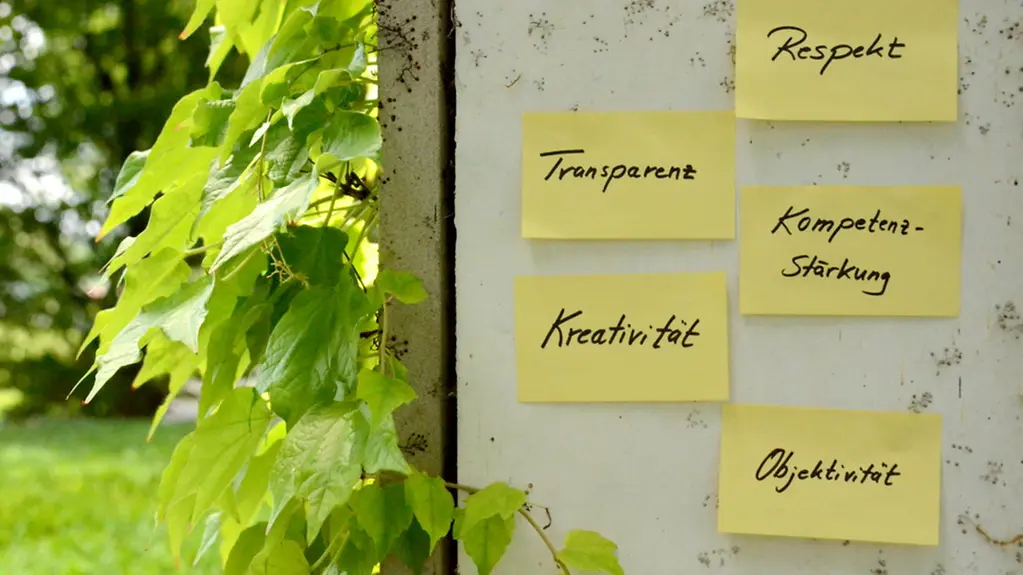 Respekt
Transparenz
Kompetenz-
Stärkung
Kreativität
Objektivität